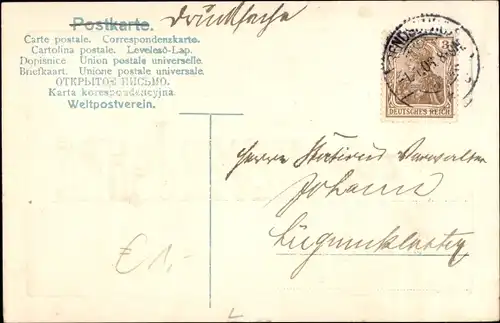 Postkarte. Drucksache
Carte postale. Correspondenzkarte.
Cartolina postale. Levelező-Lap.
Dopisnice. Union postale universelle.
Briefkaart. Unione postale universale.
ОТКРЫТОЕ ПИСЬМО.
Karta korespondencyjna.
Weltpostverein.
3
DEUTSCHES REICH
Herrn Stations Verwalter
Johann
Lügumkloster
€1,-